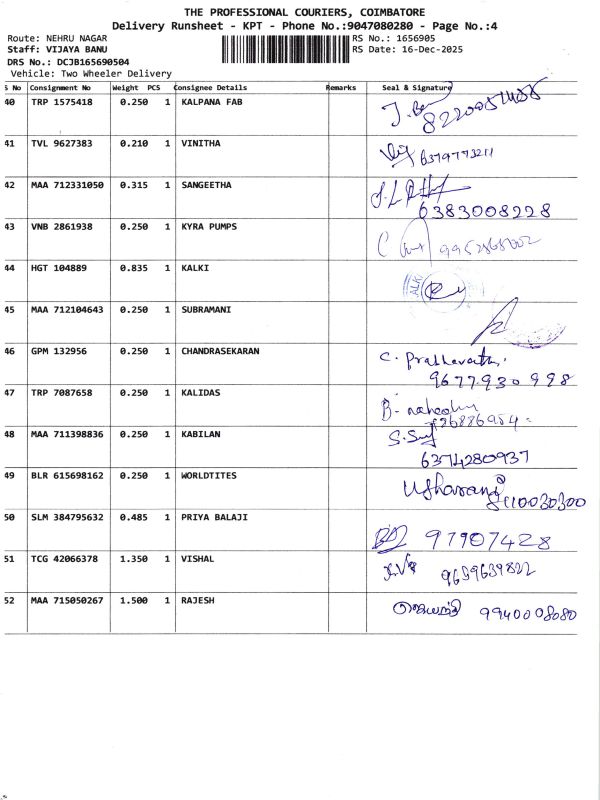 THE PROFESSIONAL COURIERS, COIMBATORE
Delivery Runsheet - KPT - Phone No.:9047080280 - Page No.:4
Route: NEHRU NAGAR RS No.: 1656905
Staff: VIJAYA BANU RS Date: 16-Dec-2025
DRS No.: DCJB165690504
Vehicle: Two Wheeler Delivery
S No Consignment No Weight PCS Consignee Details Remarks Seal & Signature
40 TRP 1575418 0.250 1 KALPANA FAB
41 TVL 9627383 0.210 1 VINITHA 6379773211
42 MAA 712331050 0.315 1 SANGEETHA
6383008228
43 VNB 2861938 0.250 1 KYRA PUMPS
44 HGT 104889 0.835 1 KALKI
45 MAA 712104643 0.250 1 SUBRAMANI
46 GPM 132956 0.250 1 CHANDRASEKARAN C. Prabhavathi
9677930998
47 TRP 7087658 0.250 1 KALIDAS
48 MAA 711398836 0.250 1 KABILAN
6374280937
49 BLR 615698162 0.250 1 WORLDTITES Usharani
50 SLM 384795632 0.485 1 PRIYA BALAJI 97907428
51 TCG 42066378 1.350 1 VISHAL 9659639822
52 MAA 715050267 1.500 1 RAJESH 9940008080